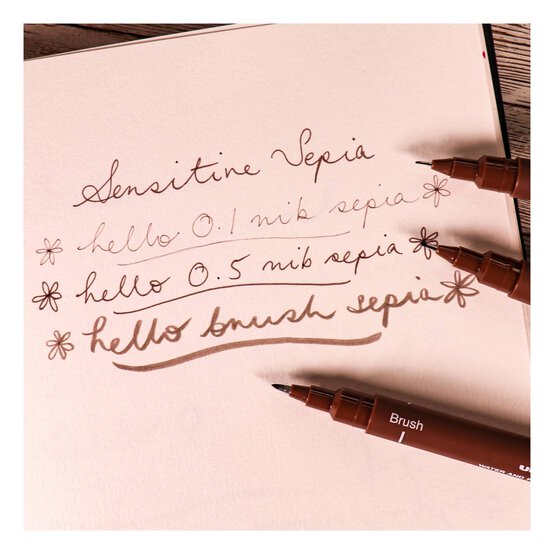 Sensitine Sepia
hello 0.1 nib sepia
hello 0.5 nib sepia
hello brush sepia
Brush
WATER AND